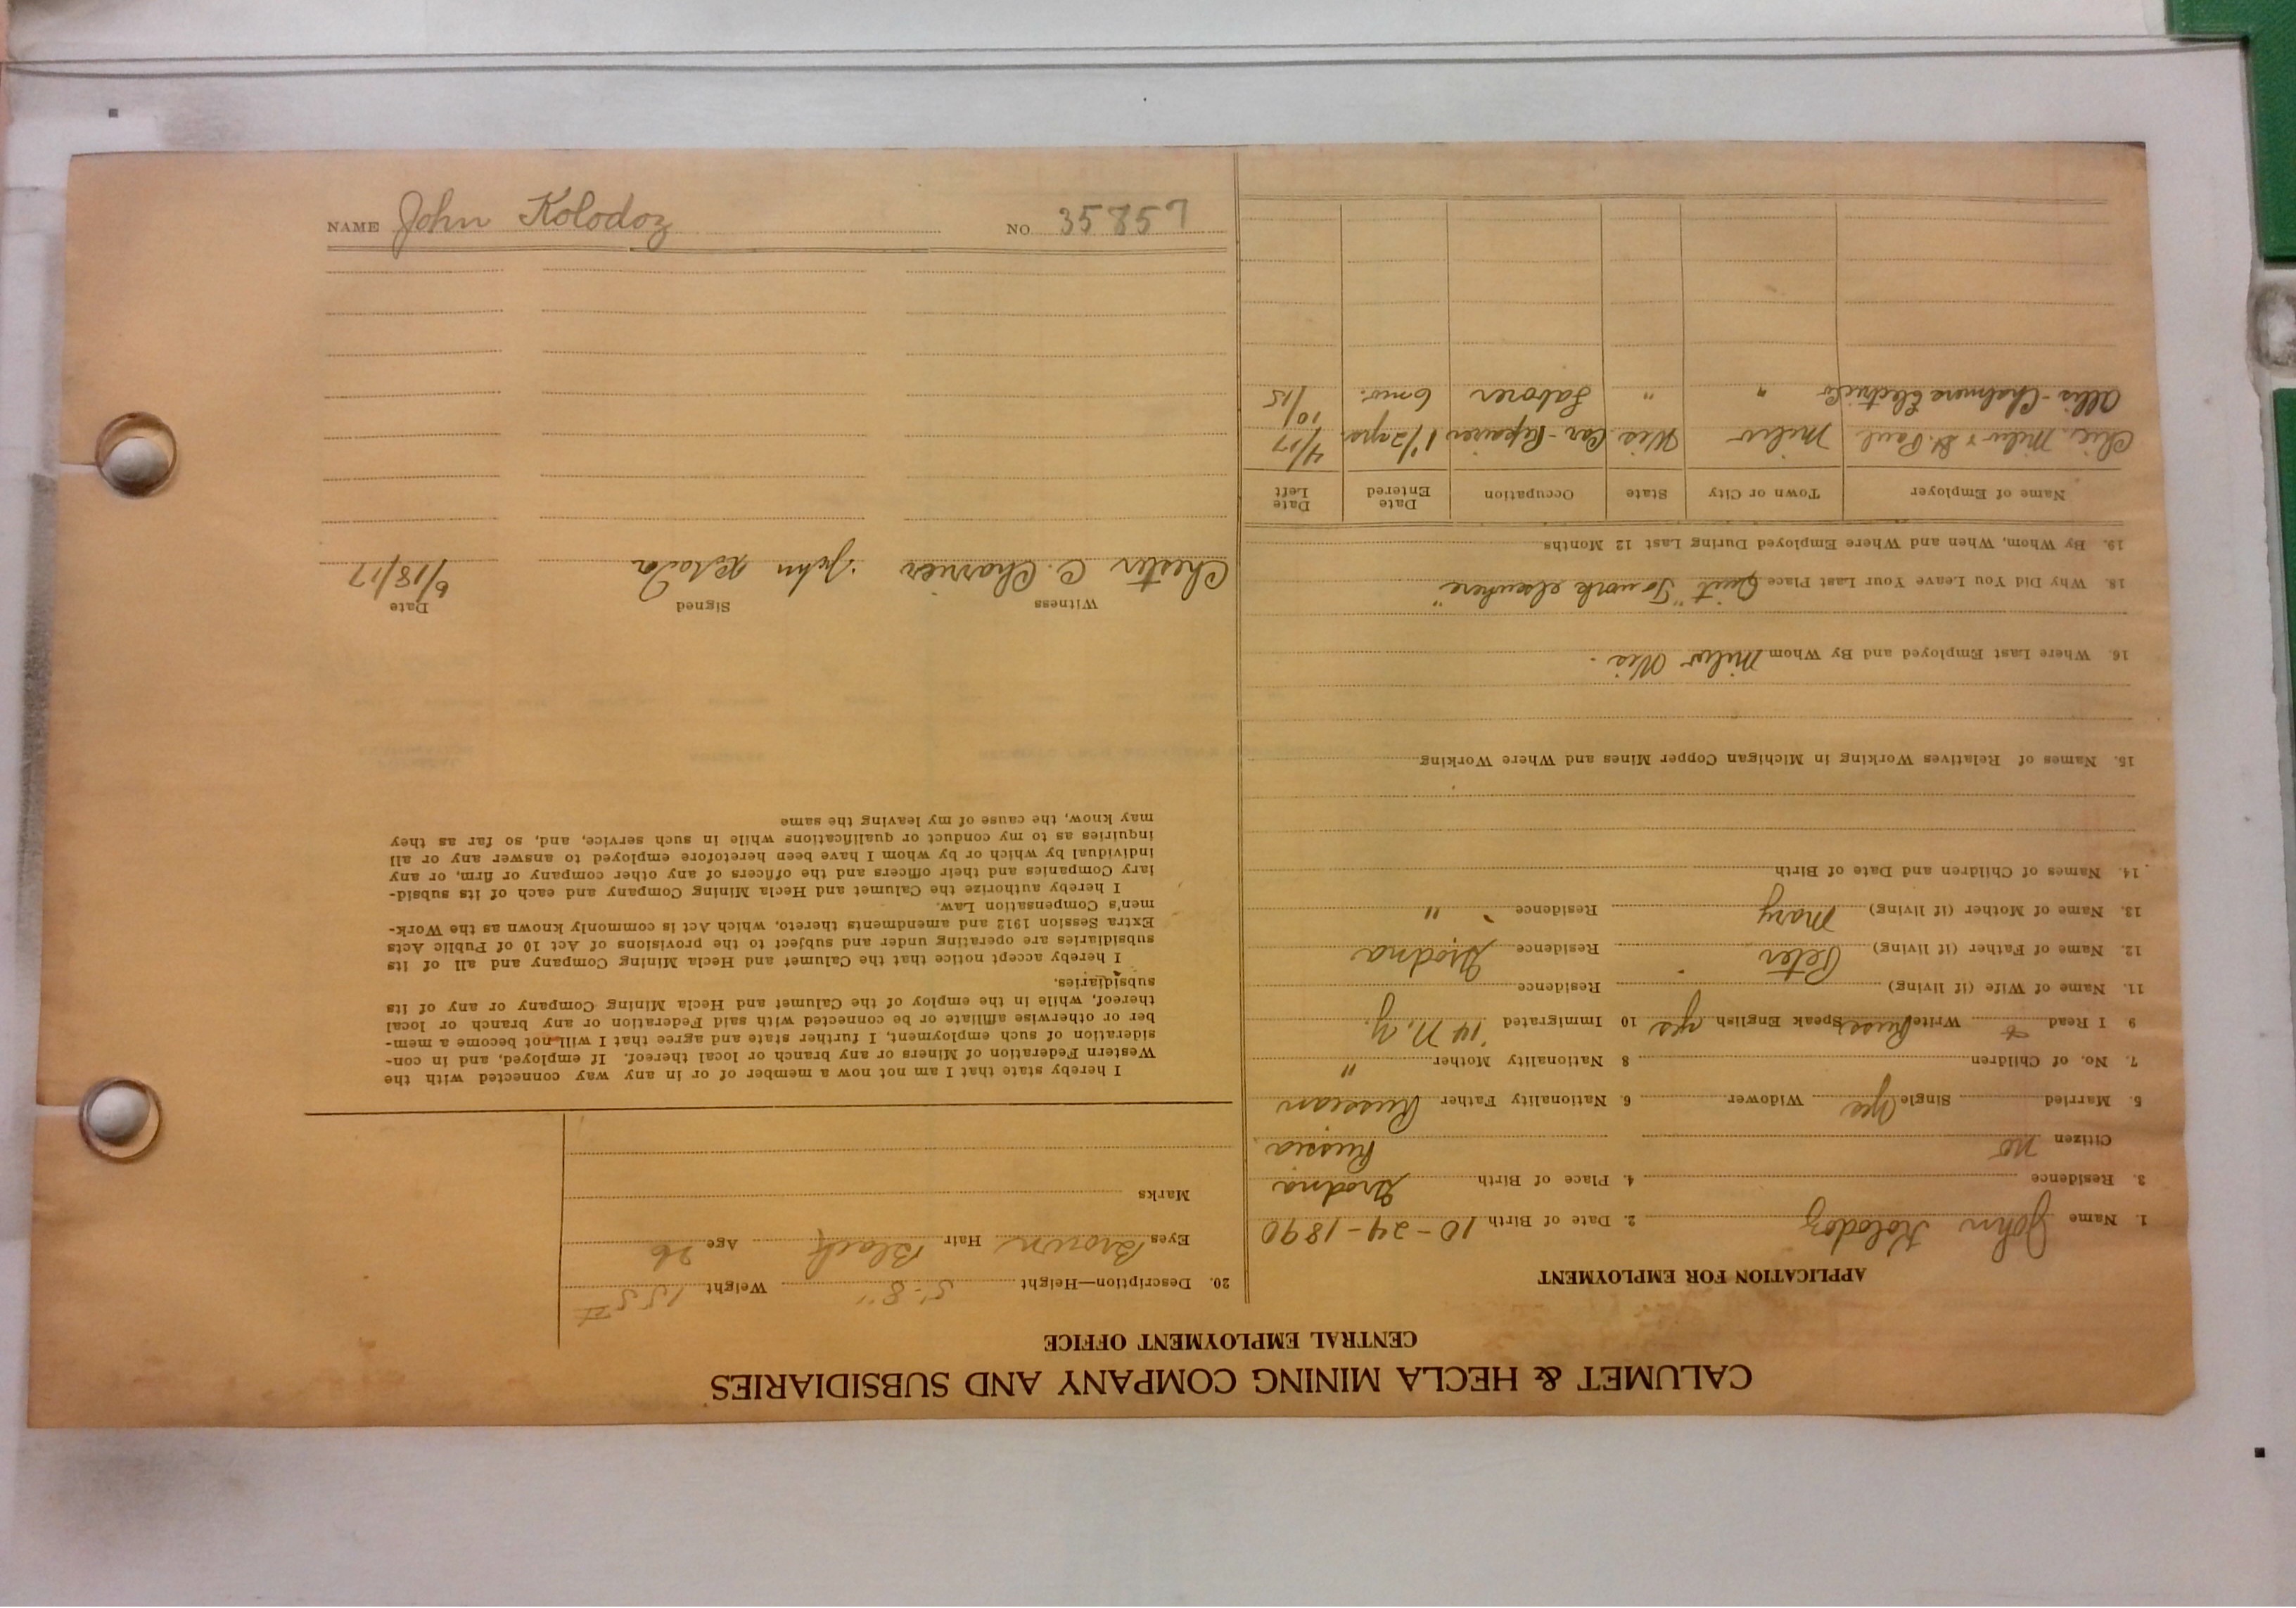 CALUMET & HECLA MINING COMPANY AND SUBSIDIARIES
CENTRAL EMPLOYMENT OFFICE
APPLICATION FOR EMPLOYMENT
1. Name John Kolodoz 2. Date of Birth 10-24-1890
3. Residence 4. Place of Birth Grodna
Citizen no Russia
5. Married Single Yes Widower 6. Nationality Father Russian
7. No. of Children 8 Nationality Mother "
9 I Read & Write Russ. Speak English yes 10 Immigrated '14 N.Y.
11. Name of Wife (if living) Residence
12. Name of Father (if living) Peter Residence Grodna
13. Name of Mother (if living) Mary Residence "
14. Names of Children and Date of Birth
15. Names of Relatives Working in Michigan Copper Mines and Where Working
16. Where Last Employed and By Whom Milw Wis.
18. Why Did You Leave Your Last Place Quit "To work elsewhere"
19. By Whom, When and Where Employed During Last 12 Months
Name of Employer Town or City State Occupation Date Entered Date Left
Chic. Milw & St. Paul Milw Wis. Car-Repairer 1 1/2 yrs. 4/17
Allis-Chalmers Electric Co " " Laborer 6 mos. 10/15
20. Description—Height 5'-8" Weight 155#
Eyes Brown Hair Black Age 26
Marks
I hereby state that I am not now a member of or in any way connected with the
Western Federation of Miners or any branch or local thereof. If employed, and in con-
sideration of such employment, I further state and agree that I will not become a mem-
ber or otherwise affiliate or be connected with said Federation or any branch or local
thereof, while in the employ of the Calumet and Hecla Mining Company or any of its
subsidiaries.
I hereby accept notice that the Calumet and Hecla Mining Company and all of its
subsidiaries are operating under and subject to the provisions of Act 10 of Public Acts
Extra Session 1912 and amendments thereto, which Act is commonly known as the Work-
men's Compensation Law.
I hereby authorize the Calumet and Hecla Mining Company and each of its subsid-
iary Companies and their officers and the officers of any other company or firm, or any
individual by which or by whom I have been heretofore employed to answer any or all
inquiries as to my conduct or qualifications while in such service, and, so far as they
may know, the cause of my leaving the same
Witness Signed Date
Chester C. Charrier John 6/18/17
NAME John Kolodoz NO 35857